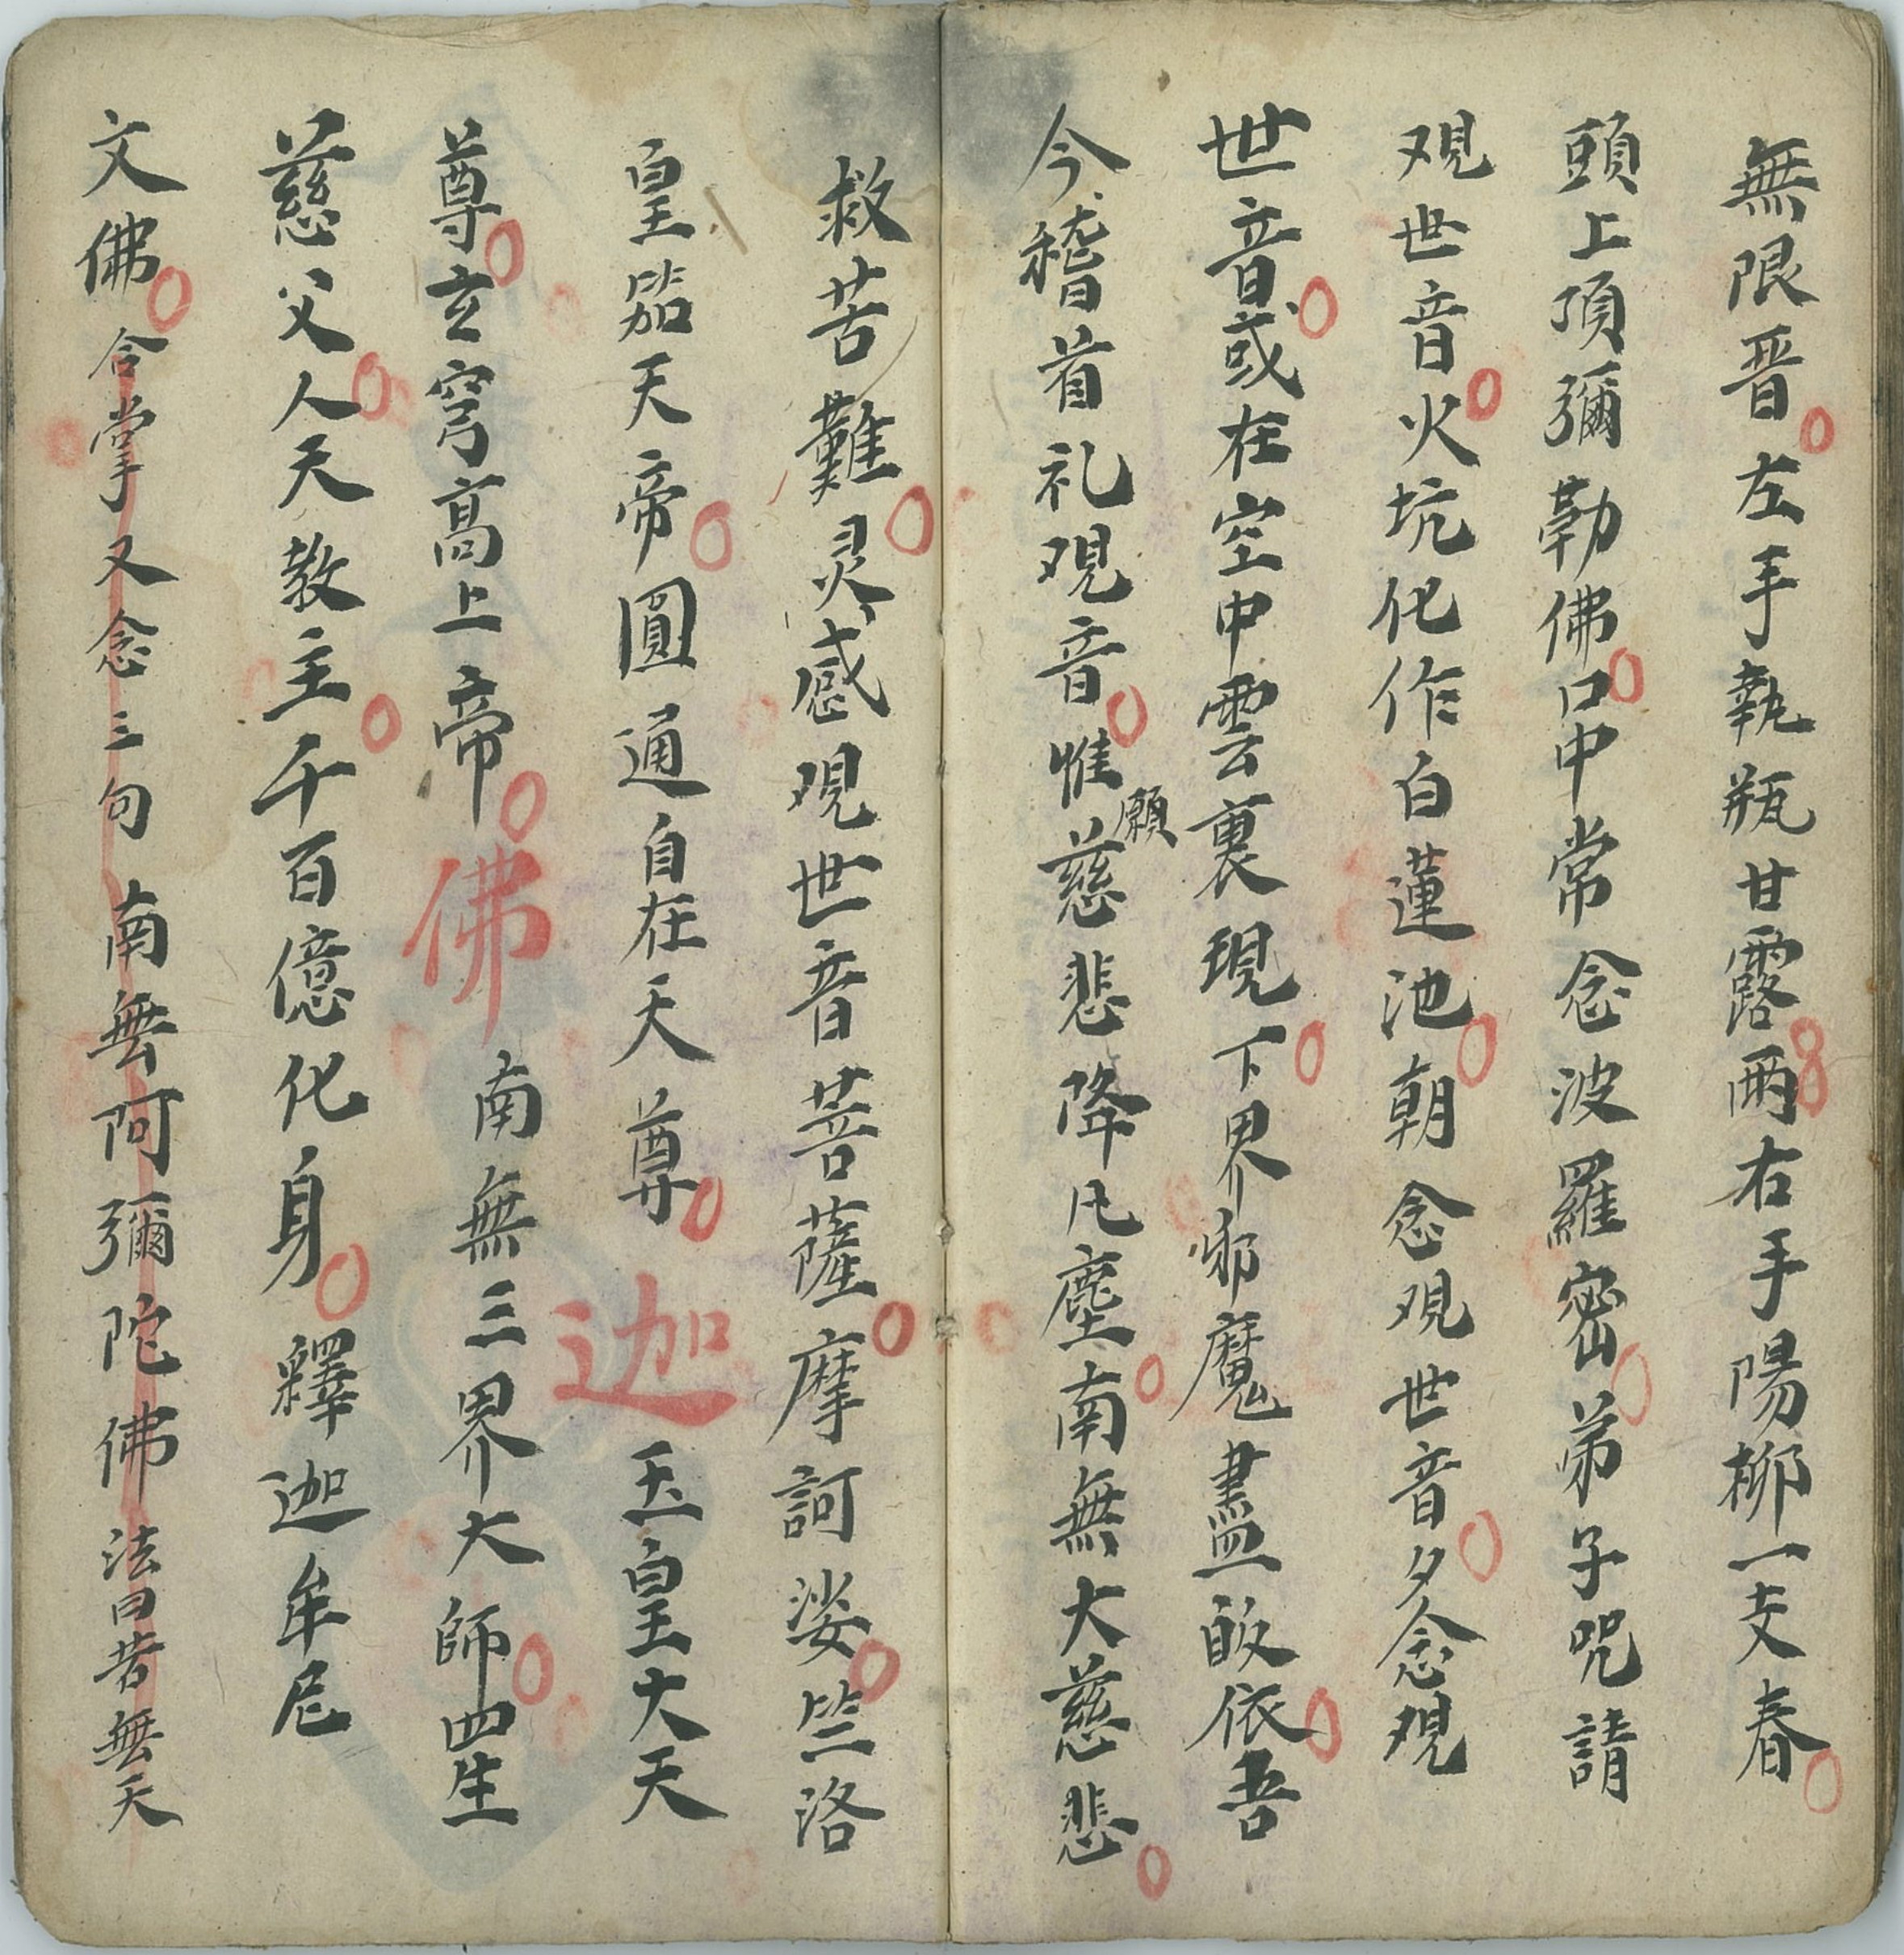 無限晋左手執瓶甘露雨右手陽柳一支春
頭上頂彌勒佛口中常念波羅密弟子咒請
观世音火坑化作白蓮池朝念观世音夕念观
世音或在空中雲裏現下界邪魔盡皈依吾
今稽首礼观音惟願慈悲降凡塵南無大慈悲
救苦難灵感观世音菩薩摩訶娑竺洛
皇笳天帝圓通自在天尊迦玉皇大天
尊玄穹高上帝佛南無三界大師四生
慈父人天教主千百億化身釋迦牟尼
文佛合掌又念三句南無阿彌陀佛法曰昔無天